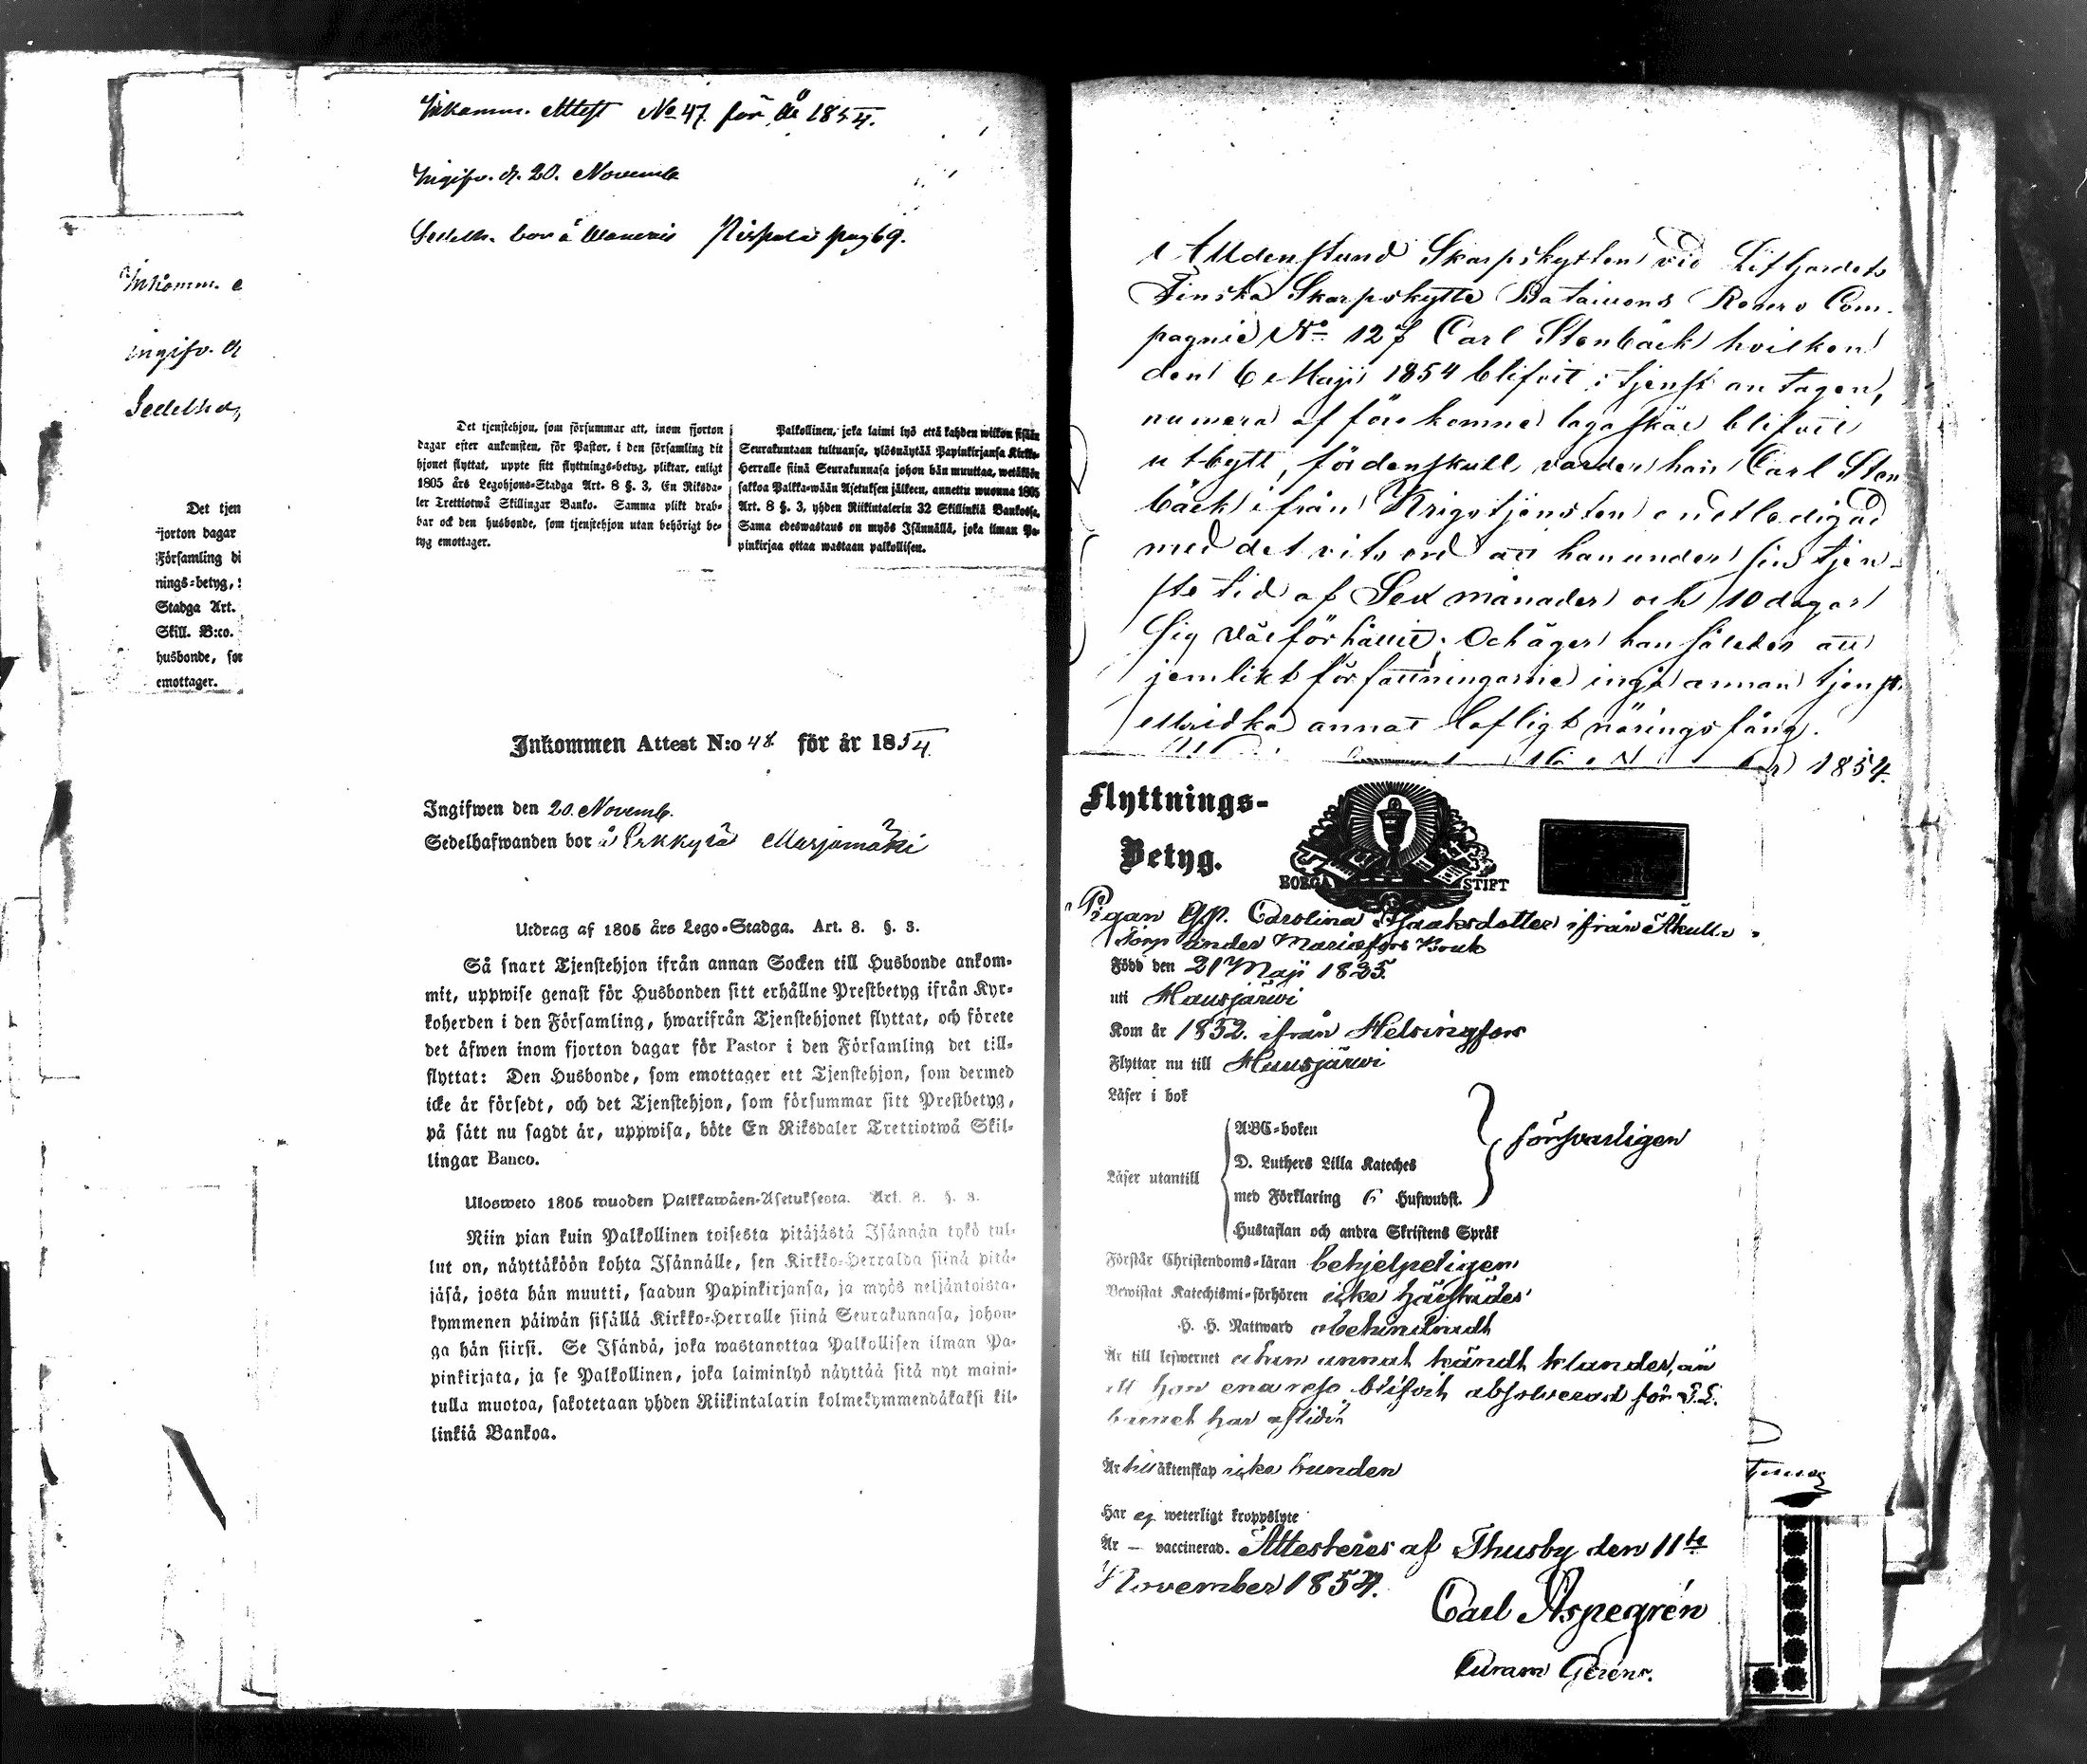 Inkomm. e
ingifv. d
Sedelhafv
Det tjen
fjorton dagar
Församling di
nings-betyg, :
Stadga Art.
Skill. B:co.
husbonde, som
emottager.
Inkomm. Attest No 47 för år 1854.
Ingifv. d. 20. Novemb
Sedelh. bor å pag 69.
Det tjenstehjon, som försummar att, inom fjorton
dagar efter ankomsten, för Pastor, i den församling dit
hjonet flyttat, uppte sitt flyttnings-betyg, pliktar, enligt
1805 års Legohjons-Stadga Art. 8 §. 3, En Riksda-
ler Trettiotwå Skillingar Banko. Samma plikt drab-
bar ock den husbonde, som tjenstehjon utan behörigt be-
tyg emottager.
Palkollinen, joka laimi lyö että kahden wiikon sisään
Seurakuntaan tultuansa, ylösnäytää Papinkirjansa Kirkko-
Herralle siinä Seurakunnasa johon hän muuttaa, wetäköön
sakkoa Palkka-wään Asetuksen jälkeen, annettu wuonna 1805
Art. 8 §. 3, yhden Riikintalerin 32 Skillinkiä Bankossa.
Sama edeswastaus on myös Isännällä, joka ilman Pa-
pinkirjaa ottaa wastaan palkollisen.
Inkommen Attest N:o 48 för år 1854.
Ingifwen den 20. Novemb.
Sedelhafwanden bor å Erkkylä Marjamäki
Utdrag af 1805 års Lego-Stadga. Art. 8. §. 3.
Så snart Tjenstehjon ifrån annan Socken till Husbonde ankom-
mit, uppwise genast för Husbonden sitt erhållne Prestbetyg ifrån Kyr-
koherden i den Församling, hwarifrån Tjenstehjonet flyttat, och förete
det äfwen inom fjorton dagar för Pastor i den Församling det till-
flyttat: Den Husbonde, som emottager ett Tjenstehjon, som dermed
icke är försedt, och det Tjenstehjon, som försummar sitt Prestbetyg,
på sätt nu sagdt är, uppwisa, böte En Riksdaler Trettiotwå Skil-
lingar Banco.
Ulosweto 1805 wuoden Palkkawäen-Asetuksesta. Art. 8. §. 3.
Niin pian kuin Palkollinen toisesta pitäjästä Isännän tykö tul-
lut on, näyttäköön kohta Isännälle, sen Kirkko-Herralda siinä pitä-
jäsä, josta hän muutti, saadun Papinkirjansa, ja myös neljäntoista-
kymmenen päiwän sisällä Kirkko-Herralle siinä Seurakunnasa, johon-
ga hän siirsi. Se Isändä, joka wastanottaa Palkollisen ilman Pa-
pinkirjata, ja se Palkollinen, joka laiminlyö näyttää sitä nyt maini-
tulla muotoa, sakotetaan yhden Riikintalarin kolmekymmendäkaksi kil-
linkiä Bankoa.
Alldenstund Skarpskytten vid Lifgardets
Finska Skarpskytte Bataillons Reserv Com-
pagnie No 127 Carl Stenbäck hvilken
den 6 Maji 1854 blifvit i tjenst antagen,
numera af förekomne laga skäl blifvit
utbytt, fördenskull varder han Carl Sten
bäck ifrån Krigstjensten entledigad
med det vitsord att han under sin tjen-
ste tid af Sex månader och 10 dagar
sig väl förhållit; Och äger han således att
jemlikt författningarne ingå annan tjenst
eller idka annat lofligt näringsfång.
1854.
Flyttnings-
Betyg.
BORGÅ STIFT
Pigan Carolina Isaksdotter ifrån Åkull
torp under Mariefors Bruk
Född den 21 Maji 1825.
uti Hausjärvi
Kom år 1852. ifrån Helsingfors
Flyttar nu till Hausjärvi
Läser i bok
Läser utantill
ABC-boken
D. Luthers Lilla Kateches
med Förklaring 6 Hufwudst.
Hustaflan och andra Skriftens Språk
försvarligen
Förstår Christendoms-läran behjelpeligen
Bewistat Katechismi-förhören icke härstädes
H. H. Nattward obehindradt
Är till lefwernet utan annat kändt klander, än
att hon ena resa blifvit absolverad för
barnet har aflidit
Är till äktenskap icke bunden
Har ej weterligt kroppslyte
Är — vaccinerad. Attesteras af Thusby den 11te
November 1854.
Carl Aspegrén
Curam Gerens.